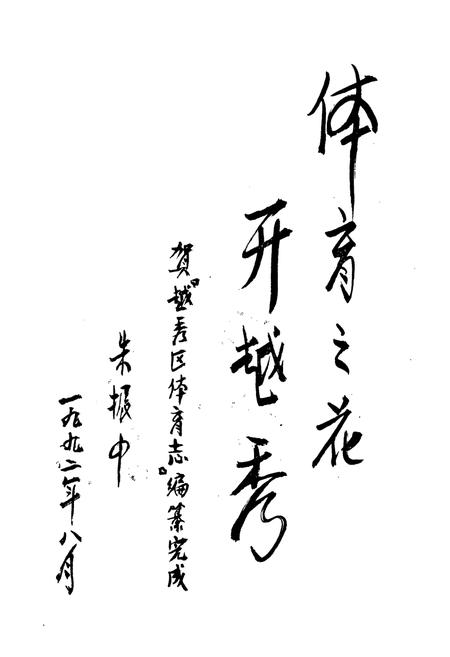 体育之花
开越秀
贺『越秀区体育志』编纂完成
朱振中
一九九二年八月